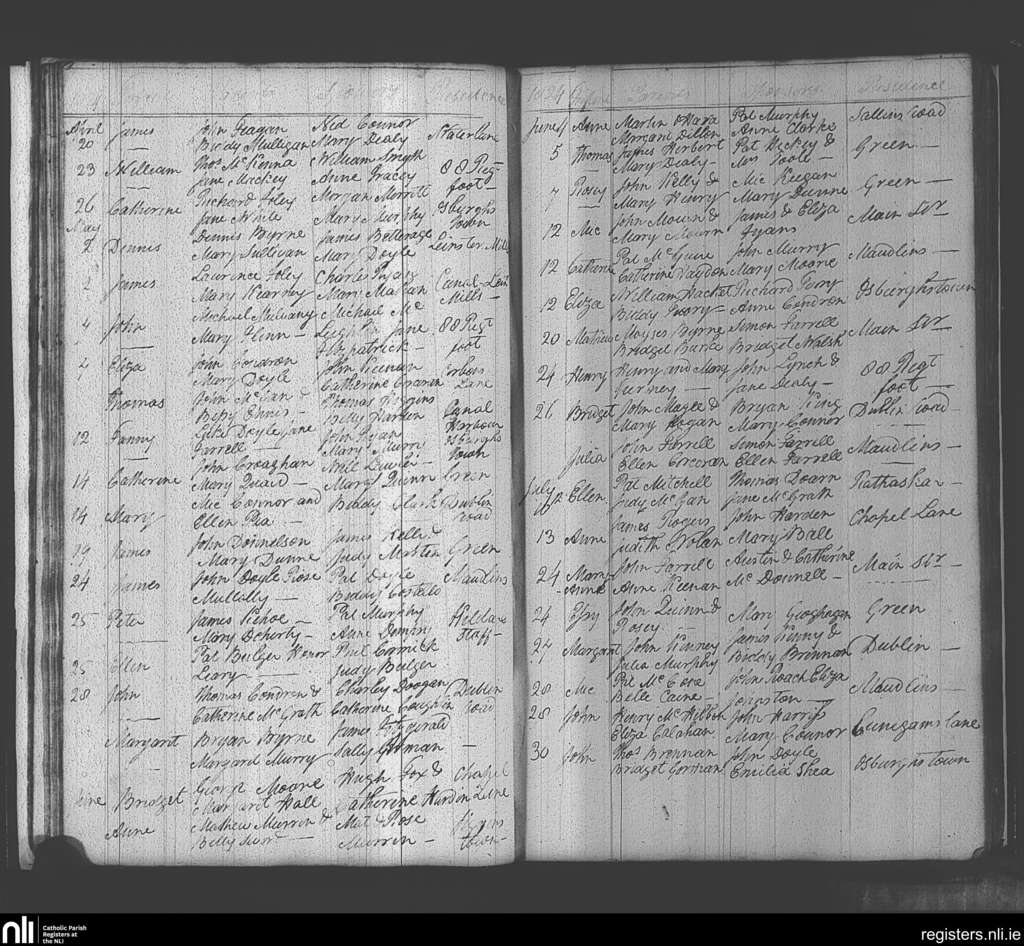 Sponsors Residence
April James John Feagan Ned Connor Waterlane
20 Biddy Mulligan Mary Dealy
23 William Thos McKenna William Smyth 88 Regt
Jane Mackey Anne Tracey foot
26 Catherine Richard Foley Morgan Merritt Osburghs
Jane White Mary Murphy town
May
2 Dennis Dennis Byrne James Linster Mills
Mary Sullivan Mary Doyle
2 James Laurence Foley Charles Canal
Mary Kearney Mary Mills
4 John Michael Mulvany Michael Mc 88 Regt
Mary Flinn Jane foot
Fitzpatrick
4 Eliza John Condron John Keenan
Mary Doyle Catherine Lane
Thomas John Thomas Higgins Canal
Betsy Ennis Betty Harbour
12 Fanny Doyle Jane John Ryan Osburghs
Farrell Mary Murry town
14 Catherine John Croaghan Green
Mary Mary Quinn
14 Mary Mic Connor and Biddy Dublin
Ellen road
19 James John Donnelson James Kelly & Green
Mary Dunne Judy
24 James John Doyle Rose Pat Doyle Maudlins
Mullally Biddy Costello
25 Peter James Kehoe Pat Murphy Kildare
Mary Doherty Anne
25 Ellen Pat Bulger Honor Phil Cormick
Leary Judy Bulger
28 John Thomas Condron & Charley Doogan Dublin
Catherine McGrath Catherine road
Margaret Bryan Byrne James Fitzgerald
Margaret Murry Sally
June Bridget George Moore Hugh Fox & Chapel
Margaret Hall Catherine Hardin Lane
Anne Mathew Murrin & Mat & Rose
Betty Murrin town
1824 Parents Sponsors Residence
June 4 Anne Martin OHara Pat Murphy Sallins road
Margaret Dillon Anne Clarke
5 Thomas James Herbert Pat Hickey & Green
Mary Dealy Mrs Poole
7 Rosey John Kelly & Mic Keegan Green
Mary Henry Mary Dunne
12 Mic John Mourn & James & Eliza Main Str
Mary Mourn
12 Catherine Pat McGuire John Murry Maudlins
Catherine Mary Moore
12 Eliza William Hacket Richard Osburghstown
Biddy Ivory Anne Condron
20 Mathew Moyses Byrne Simon Farrell Main Str
Bridget Burke Bridget Walsh
24 Henry Henry and Mary John Lynch & 88 Regt
Jane Dealy foot
26 Bridget John Magee & Bryan King Dublin road
Mary Hogan Mary Connor
Julia John Farrell Simon Farrell Maudlins
Ellen Corcoran Ellen Farrell
July 12 Ellen Pat Mitchell Thomas Doarn Rathaskar
Judy Jane McGrath
13 Anne James Rogers John Harden Chapel Lane
Judith Nolan Mary Ball
24 Mary John Farrell Austin & Catherine Main Str
Anne Anne Keenan McDonnell
24 Essy John Quinn & Mary Geoghagan Green
Rosey
27 Margaret John Kinney James Kinny & Dublin
Julia Murphy Biddy Brennan
28 Mic Pat John Roach Eliza Maudlins
Belle Caine Jongston
28 John Henry John Harriss Cunegams lane
Eliza Calahan Mary Connor
30 John Thos Brennan John Doyle Osburghstown
Bridget Gorman Emilia Shea
nli Catholic Parish
Registers at
the NLI
registers.nli.ie